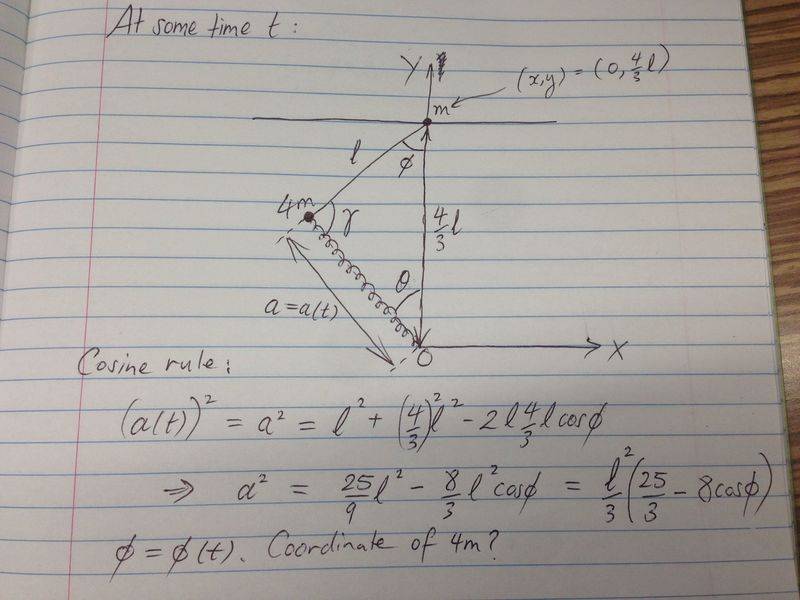 At some time t:
Y
(x,y) = (0, 4/3 l)
m
l
ϕ
4m
γ
4/3 l
θ
a = a(t)
O
X
Cosine rule:
(a(t))² = a² = l² + (4/3)² l² - 2l 4/3 l cosϕ
⇒ a² = 25/9 l² - 8/3 l² cosϕ = l²/3 (25/3 - 8cosϕ)
ϕ = ϕ(t). Coordinate of 4m?